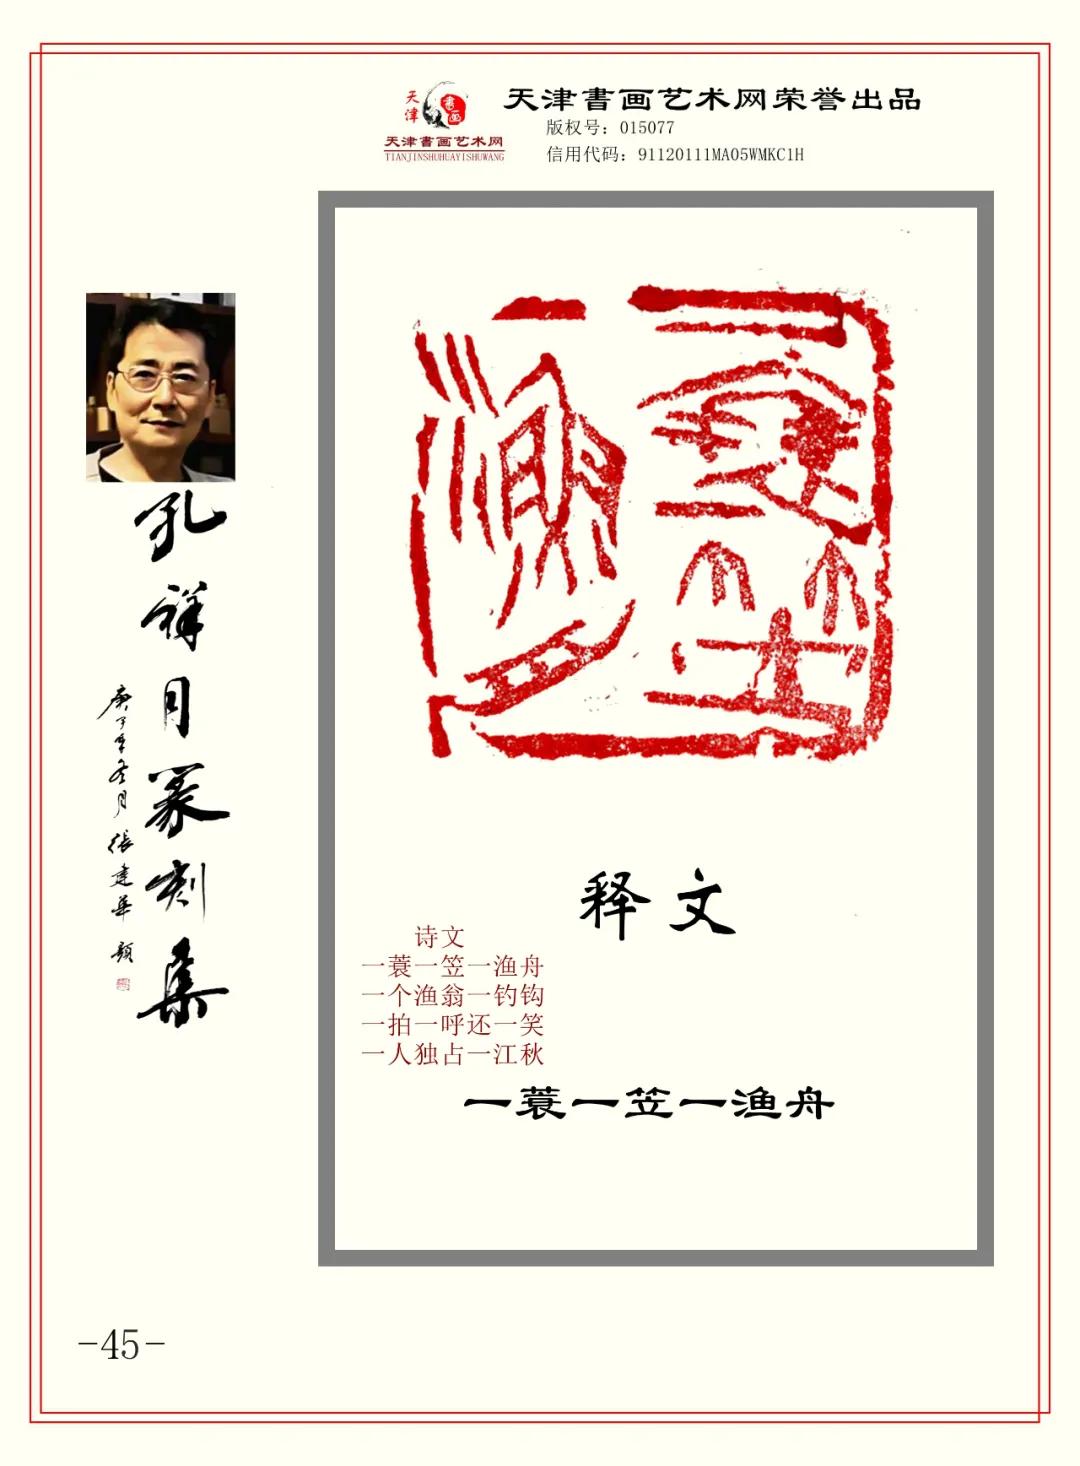 天津
書画
天津書画艺术网
TIANJINSHUHUAYISHUWANG
天津書画艺术网荣誉出品
版权号：015077
信用代码：91120111MA05WMKC1H
孔祥月篆刻集
庚子年冬月张建华题
一蓑一笠一渔舟
释文
诗文
一蓑一笠一渔舟
一个渔翁一钓钩
一拍一呼还一笑
一人独占一江秋
一蓑一笠一渔舟
-45-